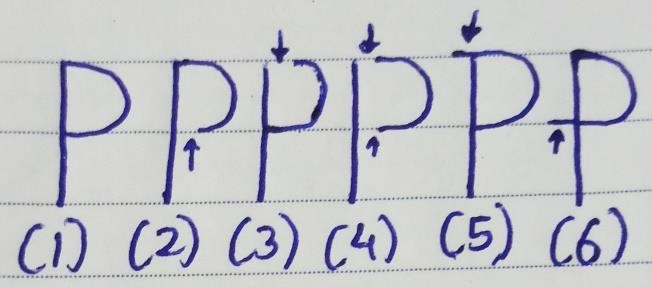 P P P P P P
(1) (2) (3) (4) (5) (6)